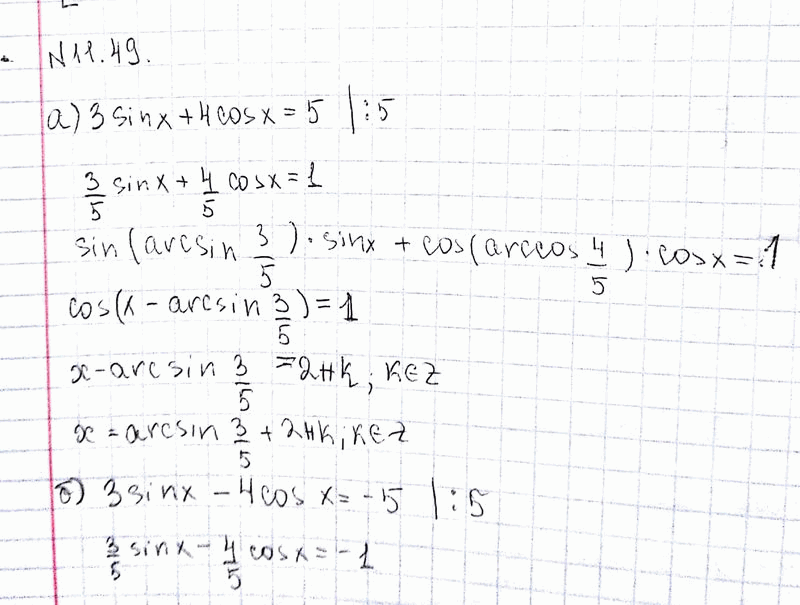 N11.49.
а) 3 sinx + 4cosx = 5 | :5
3/5 sinx + 4/5 cosx = 1
sin(arcsin 3/5) · sinx + cos(arccos 4/5) · cosx = 1
cos(x - arcsin 3/5) = 1
x - arcsin 3/5 = 2πk; k∈Z
x = arcsin 3/5 + 2πk; k∈Z
б) 3 sinx - 4cos x = -5 | :5
3/5 sinx - 4/5 cosx = -1